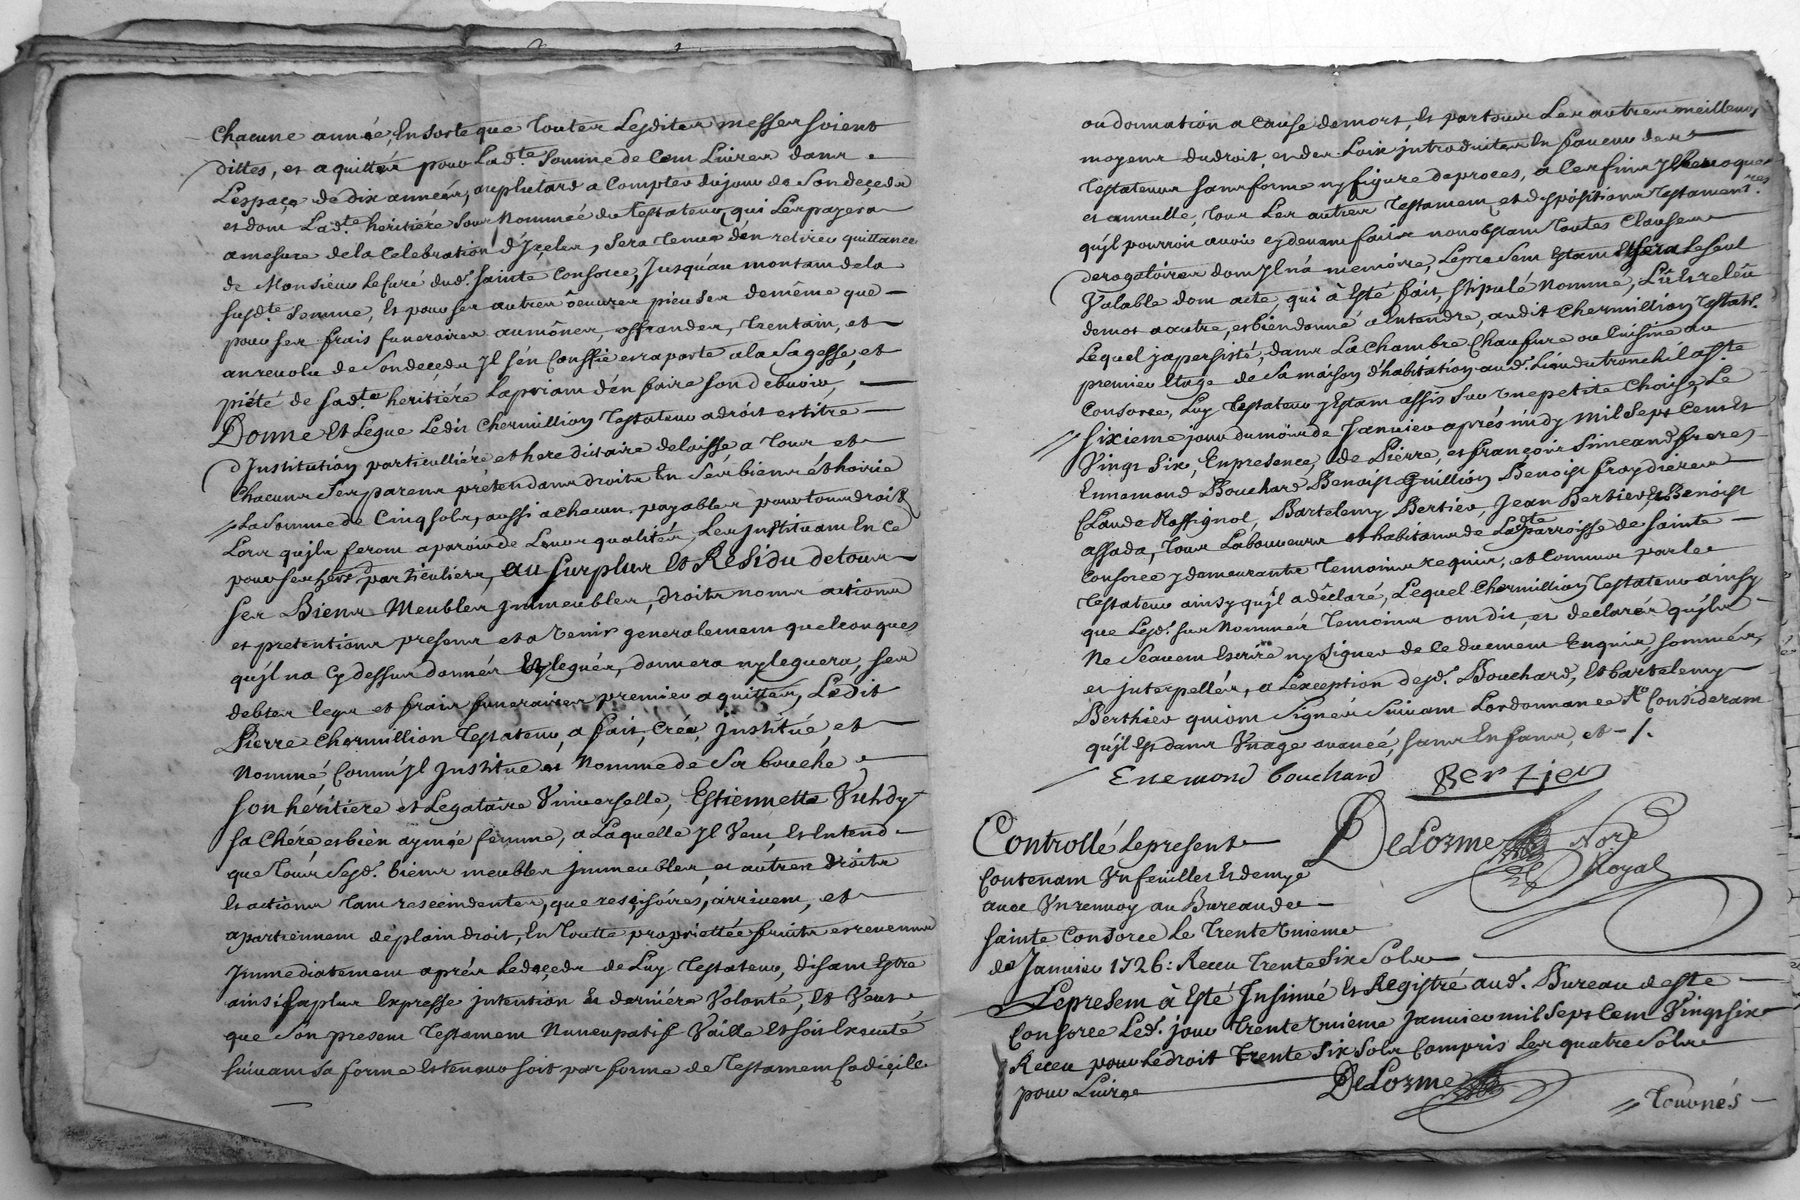 chacune année, Ensorte que toutes Lesdites messes soient
dittes, et aquittés pour Lad.te somme de Cent Livres dans
L'espace de dix années, au plutard a compter du jour de son decedz
et dont Lad.te heritiére sous Nommeé du testateur, qui Les payera
a mesure de la Celebration d'Jcelles, sera tenue d'en retirer quittance
de Monsieur Le Curé dud. sainte Consorce, Jusqu'au montant de la
susd.te somme, Et pour ses autres oeuvres pieuses de même que
pour ses frais funeraires aumônes, offrandes, trentain, et
anrevolu de son decedz Jl s'en Conffie et raporte a la sagesse, et
piété de sad.te heritiére La priant d'en faire son debvoir,
Donne Et Legue Ledit Chermillion Testateur a droit et titre
d'Institution particulliére et hereditaire delaisse a Tous et
Chacuns ses parens prétendans droits En ses biens et hoirie
La somme de Cinq sols, aussi a chacun payables pour tous droits
Lors qu'ils feront aparoir de Leurs qualités, Les Jnstituant En Ce
pour ses hers particuliers, au surplus Et Residu de tous
ses Biens Meubles Jmmeubles, droits noms actions
et pretentions presens et a venir generalement quelconques
qu'jl na Cy dessus donnés Et legués, donnera ny leguera, ses
debtes legs et frais funeraires premier aquittes, Ledit
Pierre Chermillion Testateur, a fait, Créé, Jnstitué, et
Nommé Comm'Jl Jnstitue et Nomme de Sa bouche
son héritiere et Legataire Vniverselle, Estiennette Vuldy
sa Chére et bien aymée femme, a Laquelle Jl Veut, Et Entend
que Tous sesd. biens meubles Jmmeubles, et autres droits
Et actions tant rescindentes, que rescisoires, arrivent, et
apartiennent de plain droit, En toutte proprietteé fruits et revenus
Jmmediatement aprés Le decedz de Luy Testateur, disant Estre
ainsi sa plus Expresse jntention Et derniére Volonté, Et Veut
que son present Testament Nuncupatif Vaille Et soit Executé
suivant sa forme Et teneur soit par forme de Testament Codicile
ou donnation a Cause de mort, Et par tous Les autres meilleurs
moyens du droit, et des Loix jntroduites En faveur des
Testateurs sans forme ny figure de proces, a Ces fins Jl Revoque
et annulle, Tous Les autres Testament et dispositions Testament.res
qu'jl pourroit avoir cy devant faits nonobstant Toutes Clauses
derogatoires dont Jl n'a memoire, Le present Estant Et sera Le seul
Valable dont acte, qui à Esté fait, stipulé Nomme, Lû Et relêu
de mot a autre, et bien donné a Entendre, audit Chermillion Testat.r
Lequel j a persisté, dans La Chambre Chaufure ou Cuisine au
premier Etage de sa maison d'habitation aud. Lieu du tronchel aste
Consorce, Luy Testateur y Estant assis sur vne petite Chaise, Le
sixieme jour du mois de Janvier aprés midy Mil Sept Cent Et
Vingt Six, En presence, de Pierre, et François Simeand freres
Ennemond Bouchard Benoist Guillion Benoist Froydiere
Claude Rossignol, Bartelemy Bertier, Jean Bertier, Et Benoist
assada, Tous Laboureurs et habitans de Lad.te parroisse de sainte
Consorce y demeurants Temoins requis, et Connus par le
Testateur ainsy qu'jl a déclaré, Lequel Chermillion Testateur ainsy
que Lesd. sus Nommés Temoins ont dit, et declarés qu'jls
Ne sçavent Escrire ny signer de Ce duement Enquis, sommés,
et jnterpellés, a L'exception desd. Bouchard, Et bartelemy
Berthier qui ont signés suivant L'ordonnance R.le Considerant
qu'jl Est dans Vn age avancé, sans Enfans, et ./.
Enemond bouchard Bertier
Delorme No.re Royal
Controllé Le present
Contenant Vn feuillet Et demye
avec Vn renvoy au Bureau de
sainte Consorce le Trente Vnieme
de Janvier 1726: Receu Trente Six Sols
Le present à Esté Jnsinué Et Registré aud. Bureau de Ste
Consorce Led. jour Trente Vnieme Janvier mil Sept Cent Vingt six
Receu pour Le droit Trente six Sols Compris Les quatre Sols
pour Livre Delorme
Tournés